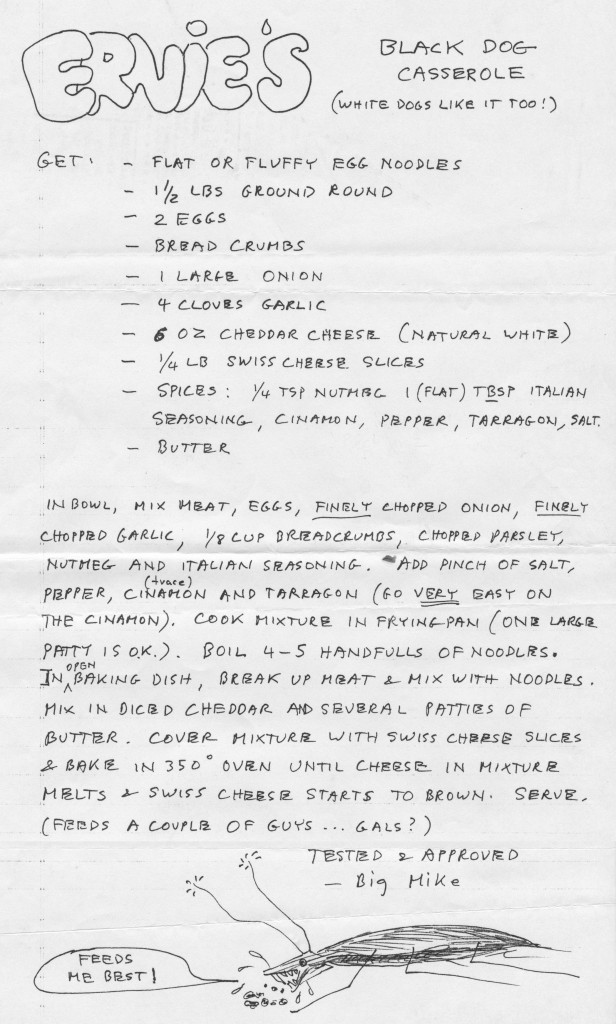 ERNIE'S
BLACK DOG
CASSEROLE
(WHITE DOGS LIKE IT TOO!)
GET: - FLAT OR FLUFFY EGG NOODLES
- 1 1/2 LBS GROUND ROUND
- 2 EGGS
- BREAD CRUMBS
- 1 LARGE ONION
- 4 CLOVES GARLIC
- 6 OZ CHEDDAR CHEESE (NATURAL WHITE)
- 1/4 LB SWISS CHEESE SLICES
- SPICES: 1/4 TSP NUTMEG 1 (FLAT) TBSP ITALIAN
SEASONING, CINAMON, PEPPER, TARRAGON, SALT.
- BUTTER
IN BOWL, MIX MEAT, EGGS, FINELY CHOPPED ONION, FINELY
CHOPPED GARLIC, 1/8 CUP BREADCRUMBS, CHOPPED PARSLEY,
NUTMEG AND ITALIAN SEASONING. ADD PINCH OF SALT,
PEPPER, CINAMON (trace) AND TARRAGON (GO VERY EASY ON
THE CINAMON). COOK MIXTURE IN FRYING PAN (ONE LARGE
PATTY IS O.K.). BOIL 4-5 HANDFULLS OF NOODLES.
IN OPEN BAKING DISH, BREAK UP MEAT & MIX WITH NOODLES.
MIX IN DICED CHEDDAR AND SEVERAL PATTIES OF
BUTTER. COVER MIXTURE WITH SWISS CHEESE SLICES
& BAKE IN 350° OVEN UNTIL CHEESE IN MIXTURE
MELTS & SWISS CHEESE STARTS TO BROWN. SERVE.
(FEEDS A COUPLE OF GUYS ... GALS?)
TESTED & APPROVED
- Big Mike
FEEDS
ME BEST!